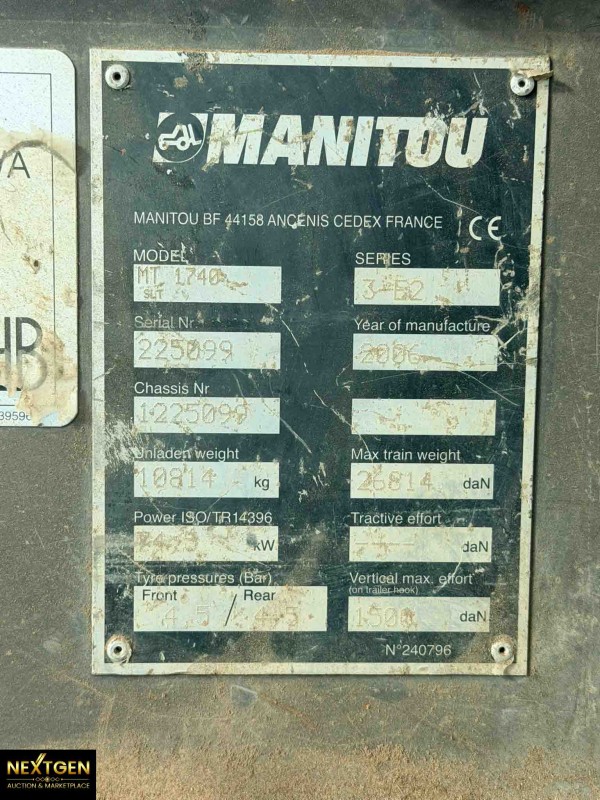 MANITOU
MANITOU BF 44158 ANCENIS CEDEX FRANCE CE
MODEL SERIES
MT 1740 3-E2
SLT
Serial Nr Year of manufacture
225099 2006
Chassis Nr
1225099
Unladen weight Max train weight
10814 kg 26814 daN
Power ISO/TR14396 Tractive effort
kW daN
Tyre pressures (Bar) Vertical max. effort
(on trailer hook)
Front Rear
4.5 / 4.5 1500 daN
N°240796
/A
HB
39596
NEXTGEN
AUCTION & MARKETPLACE